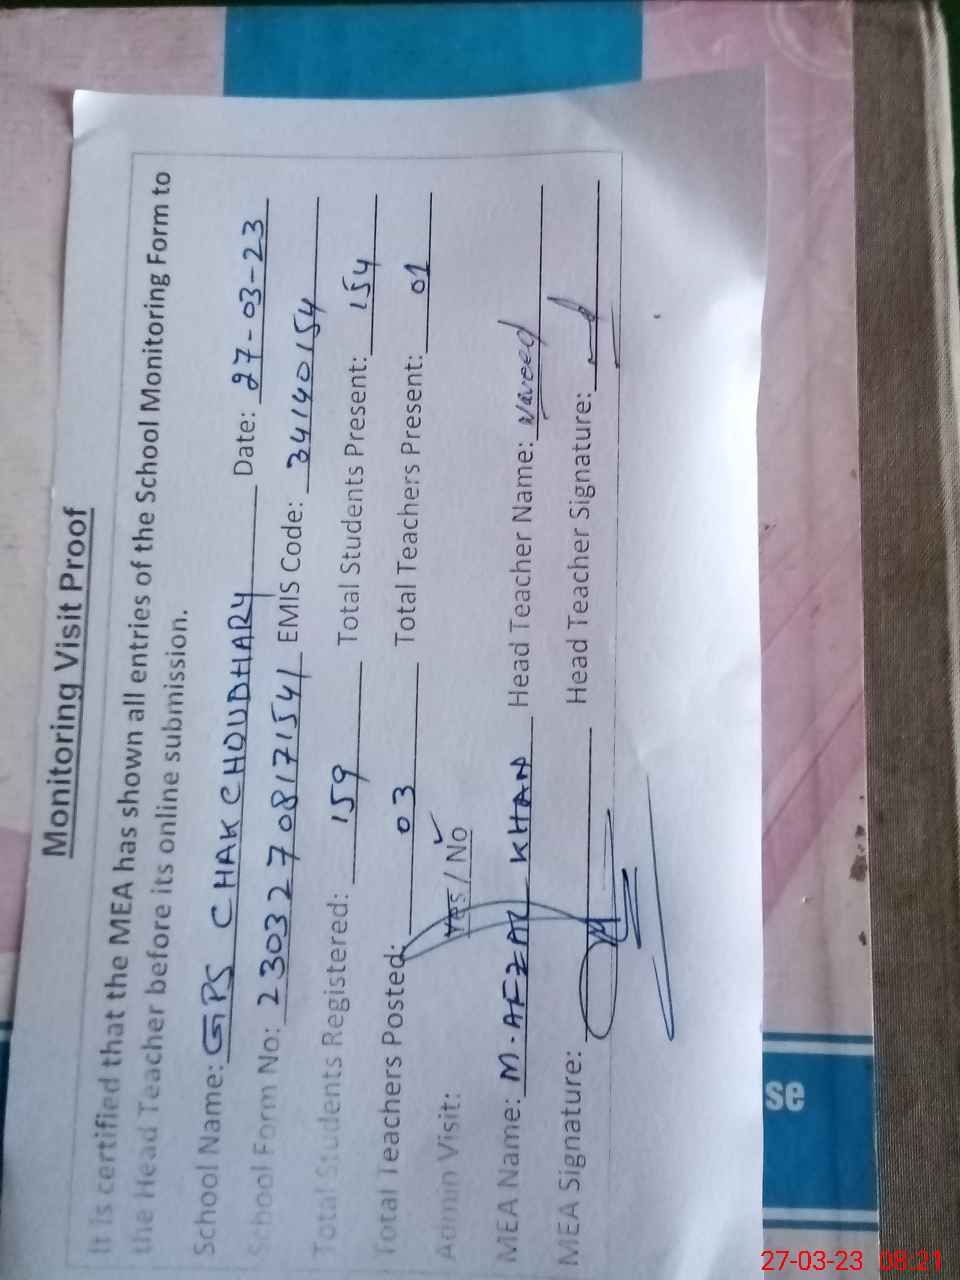 Monitoring Visit Proof
It is certified that the MEA has shown all entries of the School Monitoring Form to
the Head Teacher before its online submission.
School Name: GPS CHAK CHOUDHARY Date: 27-03-23
School Form No: 23032708171541 EMIS Code: 34140154
Total Students Registered: 159 Total Students Present: 154
Total Teachers Posted: 03 Total Teachers Present: 01
Admin Visit: Yes / No ✓
MEA Name: M. AFZAL KHAN Head Teacher Name: Naveed
MEA Signature: Head Teacher Signature:
se
27-03-23 08:21